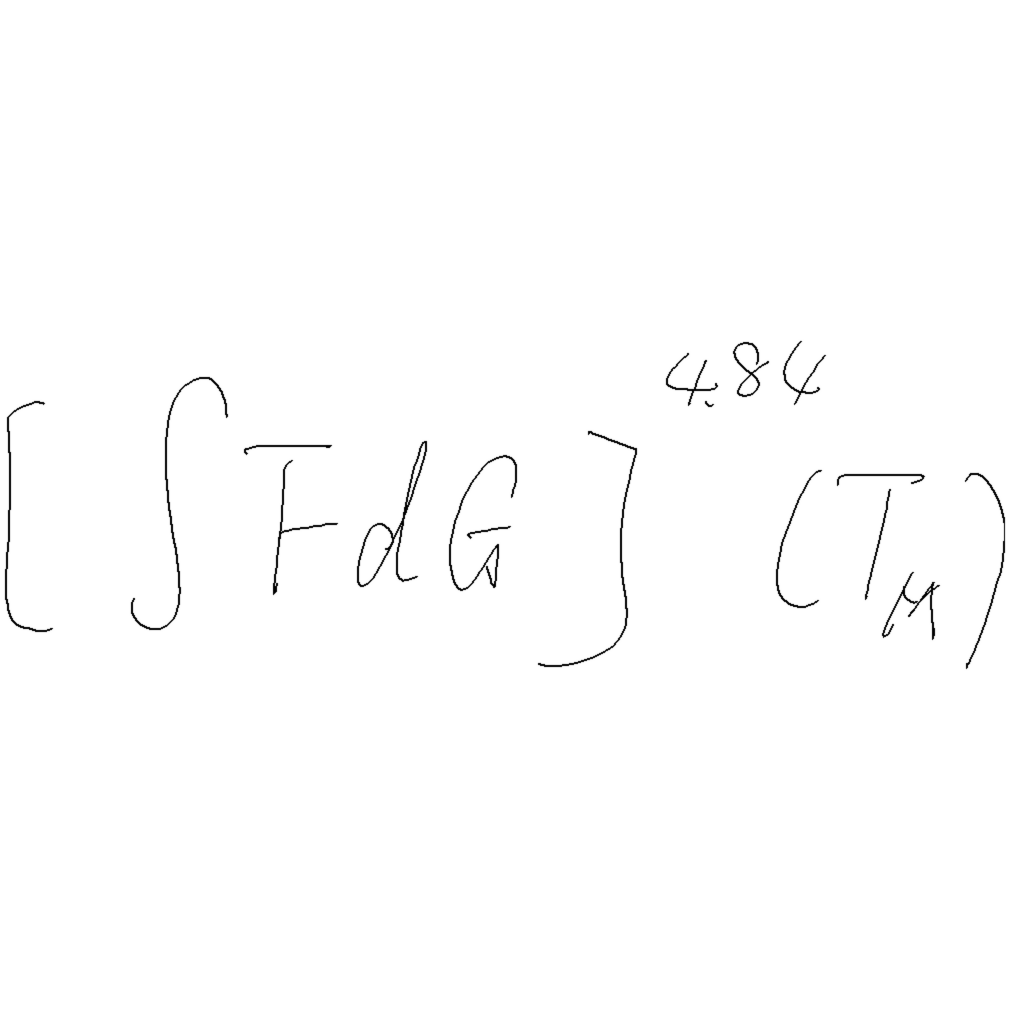 [∫ F d G]^{4.84} (T_M)